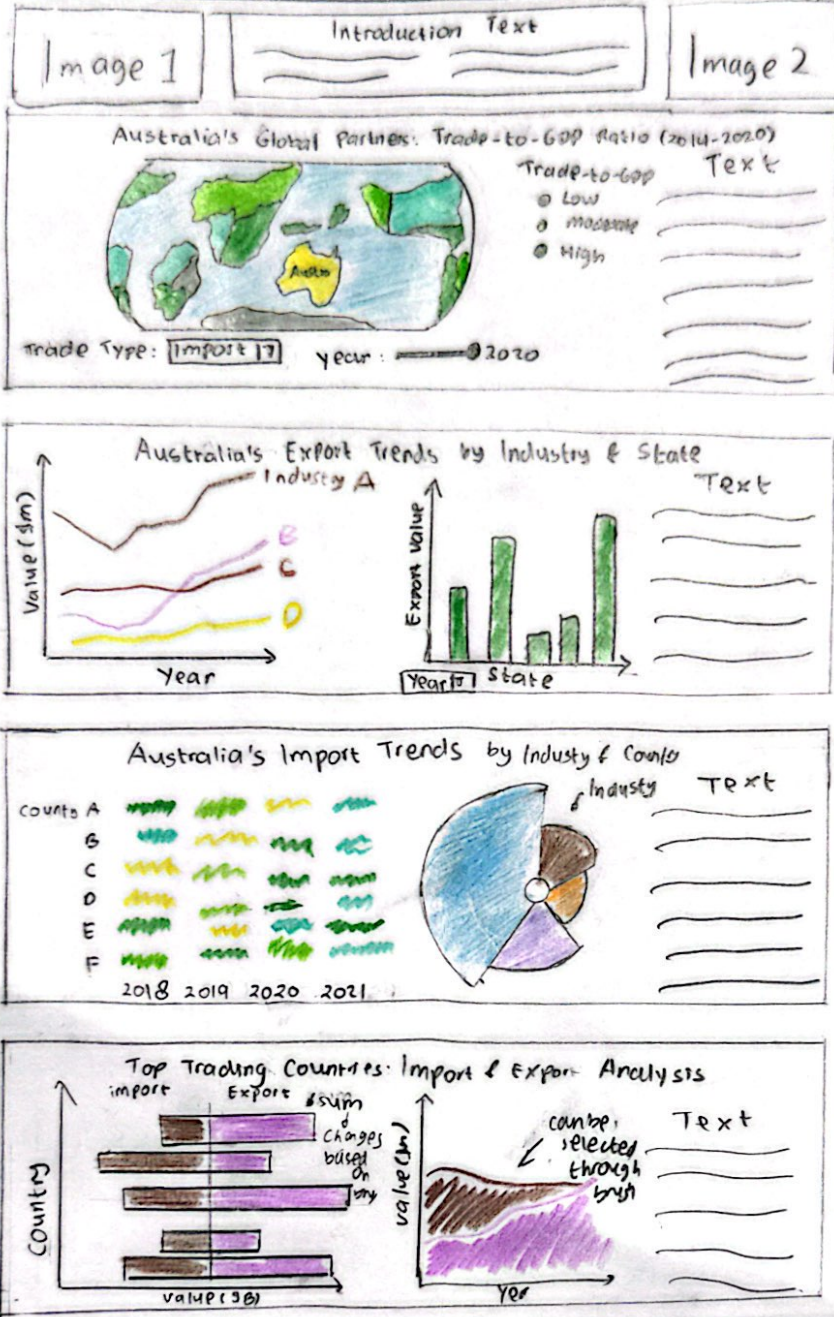 Image 1
Introduction Text
Image 2
Australia's Global Partners: Trade-to-GDP Ratio (2014-2020)
Trade-to-GDP
Low
Moderate
High
Text
Austra
Trade Type: Import
year:
2020
Australia's Export Trends by Industry & State
Value ($m)
Industry A
B
C
D
Year
Export value
Year
State
Text
Australia's Import Trends by Industy &
A
B
C
D
E
F
2018 2019 2020 2021
Industy
Text
Top Trading Countries: Import & Export Analysis
import
Export
Country
sum
Changes
based
on
value
value($m)
can be
selected
through
brush
Yer
Text